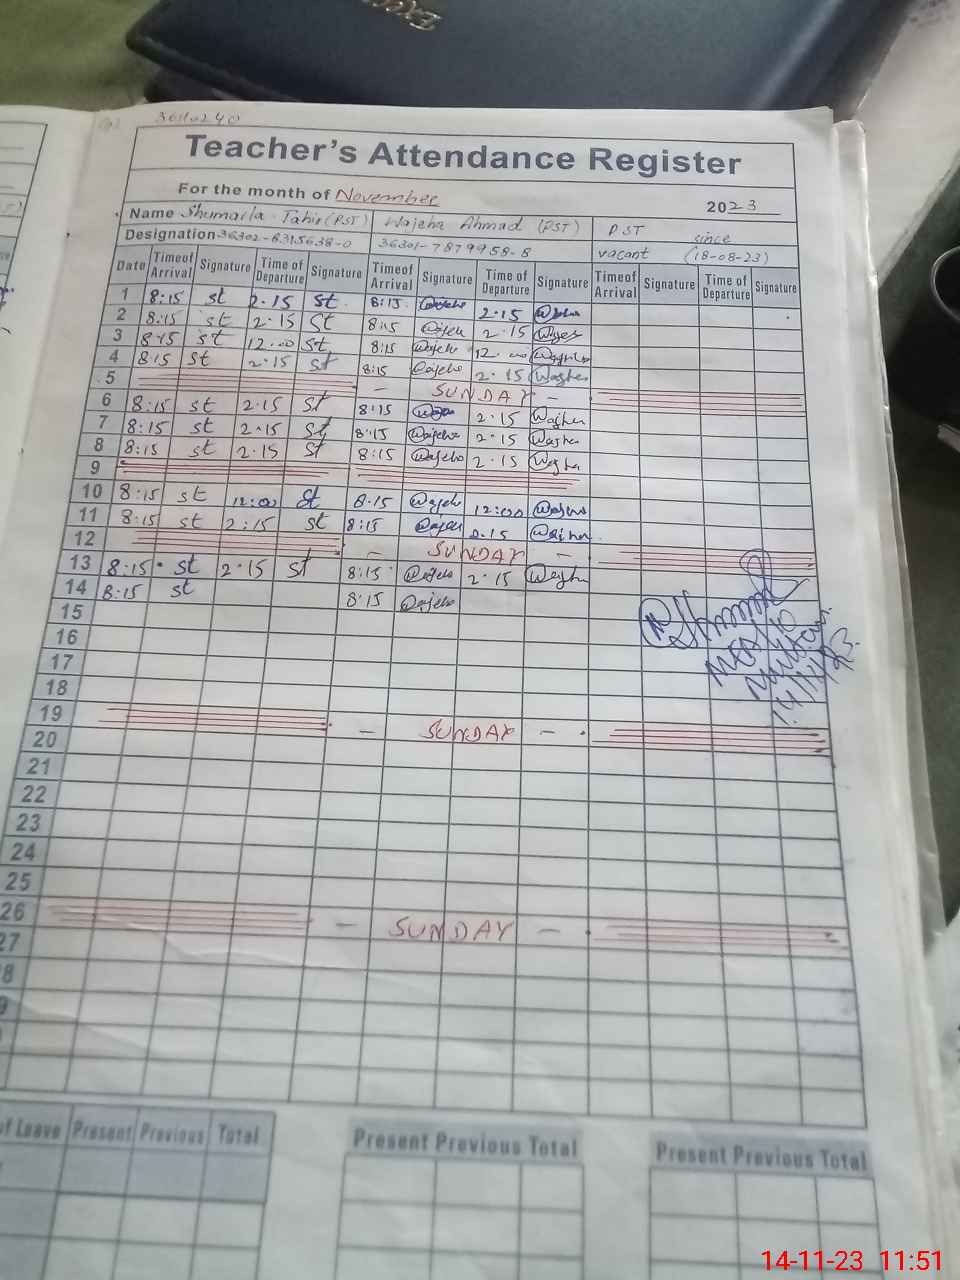 36110240
Teacher's Attendance Register
For the month of November 2023
Name Shumaila Tahir (PST) Wajeha Ahmad (PST) PST since
Designation 36302-8315638-0 36301-7879958-8 vacant (18-08-23)
Date Time of Arrival Signature Time of Departure Signature Time of Arrival Signature Time of Departure Signature Time of Arrival Signature Time of Departure Signature
1 8:15 st 2.15 st 8:15 Wajeha 2.15
2 8:15 st 2.15 st 8:15 2.15
3 8:15 st 12.00 st 8:15 Wajeha 12.00
4 8:15 st 2.15 st 8:15 Wajeha 2.15
5 - SUNDAY -
6 8:15 st 2.15 st 8:15 2.15
7 8:15 st 2.15 st 8:15 Wajeha 2.15
8 8:15 st 2.15 st 8:15 Wajeha 2.15
9
10 8:15 st 12:00 st 8.15 Wajeha 12:00
11 8:15 st 2:15 st 8:15 2.15
12 - SUNDAY -
13 8:15 st 2.15 st 8:15 Wajeha 2.15
14 8:15 st 8:15 Wajeha
15
16
17
18
19 - SUNDAY -
20
21
22
23
24
25
26 - SUNDAY -
27
14/11/23
of Leave Present Previous Total Present Previous Total Present Previous Total
14-11-23 11:51